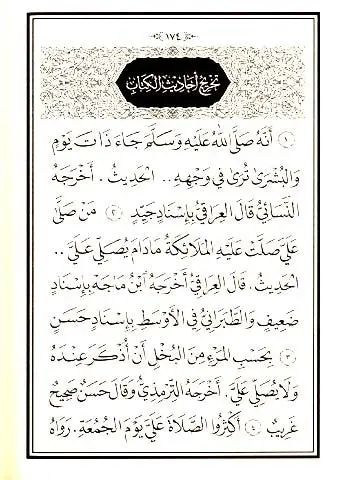 ١٧٤
تخريج أحاديث الكتاب
١ أَنَّهُ صَلَّى اللهُ عَلَيْهِ وَسَلَّمَ جَاءَ ذَاتَ يَوْمٍ
وَالْبُشْرَى تُرَى فِي وَجْهِهِ .. الْحَدِيثُ . أَخْرَجَهُ
النَّسَائِيُّ قَالَ الْعِرَاقِيُّ بِإِسْنَادٍ جَيِّدٍ ٢ مَنْ صَلَّى
عَلَيَّ صَلَّتْ عَلَيْهِ الْمَلَائِكَةُ مَادَامَ يُصَلِّي عَلَيَّ ..
الْحَدِيثُ . قَالَ الْعِرَاقِيُّ أَخْرَجَهُ ابْنُ مَاجَهْ بِإِسْنَادٍ
ضَعِيفٍ وَالطَّبَرَانِيُّ فِي الْأَوْسَطِ بِإِسْنَادٍ حَسَنٍ
٣ بِحَسْبِ الْمَرْءِ مِنَ الْبُخْلِ أَنْ أُذْكَرَ عِنْدَهُ
وَلَا يُصَلِّي عَلَيَّ . أَخْرَجَهُ التِّرْمِذِيُّ وَقَالَ حَسَنٌ صَحِيحٌ
غَرِيبٌ ٤ أَكْثِرُوا الصَّلَاةَ عَلَيَّ يَوْمَ الْجُمُعَةِ . رَوَاهُ